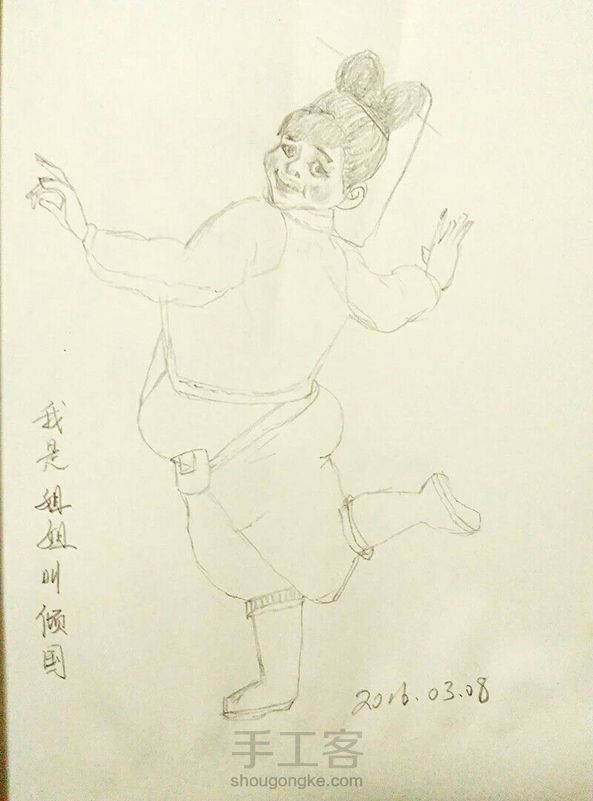 我是姐姐叫倾国
2016.03.08
手工客
shougongke.com